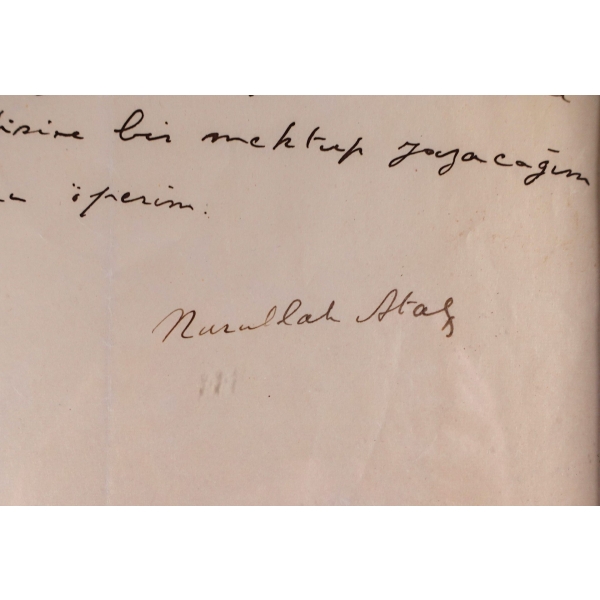 bir mektup yazacağım
öperim.
Nurullah Ataç